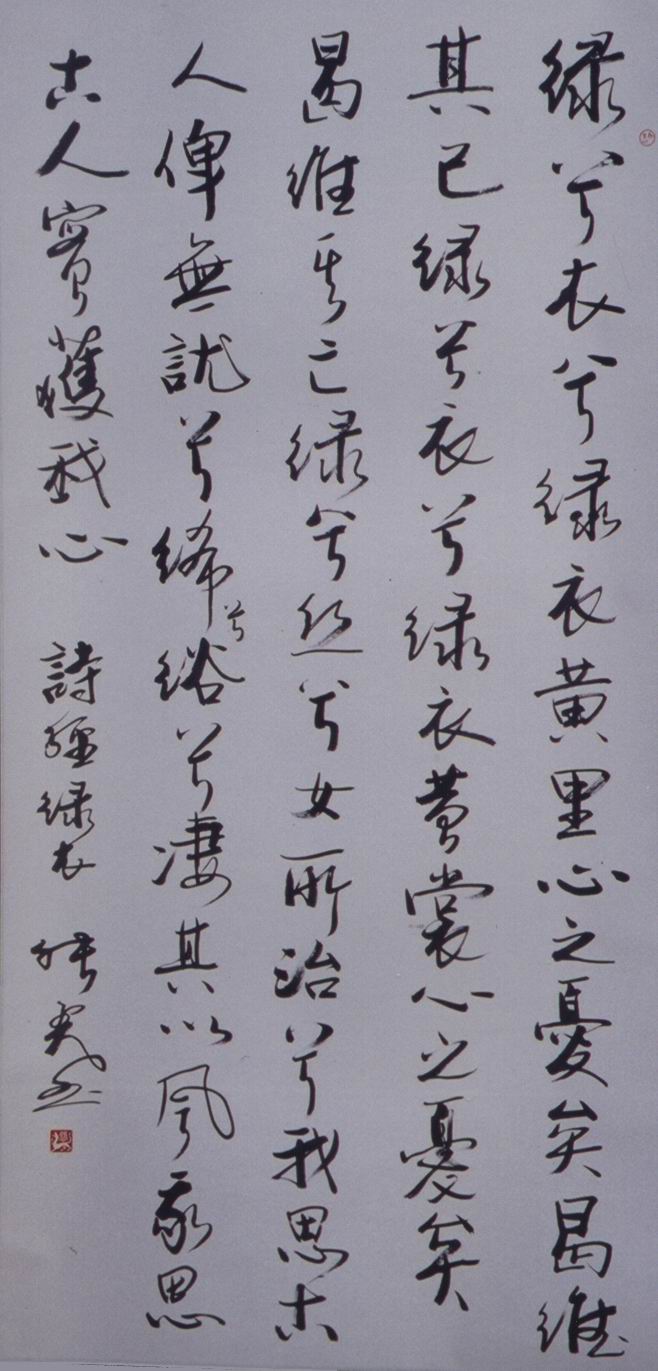 綠兮衣兮綠衣黄里心之憂矣曷維
其已綠兮衣兮綠衣黄裳心之憂矣
曷維其亡綠兮丝兮女所治兮我思古
人俾無訧兮絺兮綌兮凄其以風我思
古人實獲我心 詩經綠衣